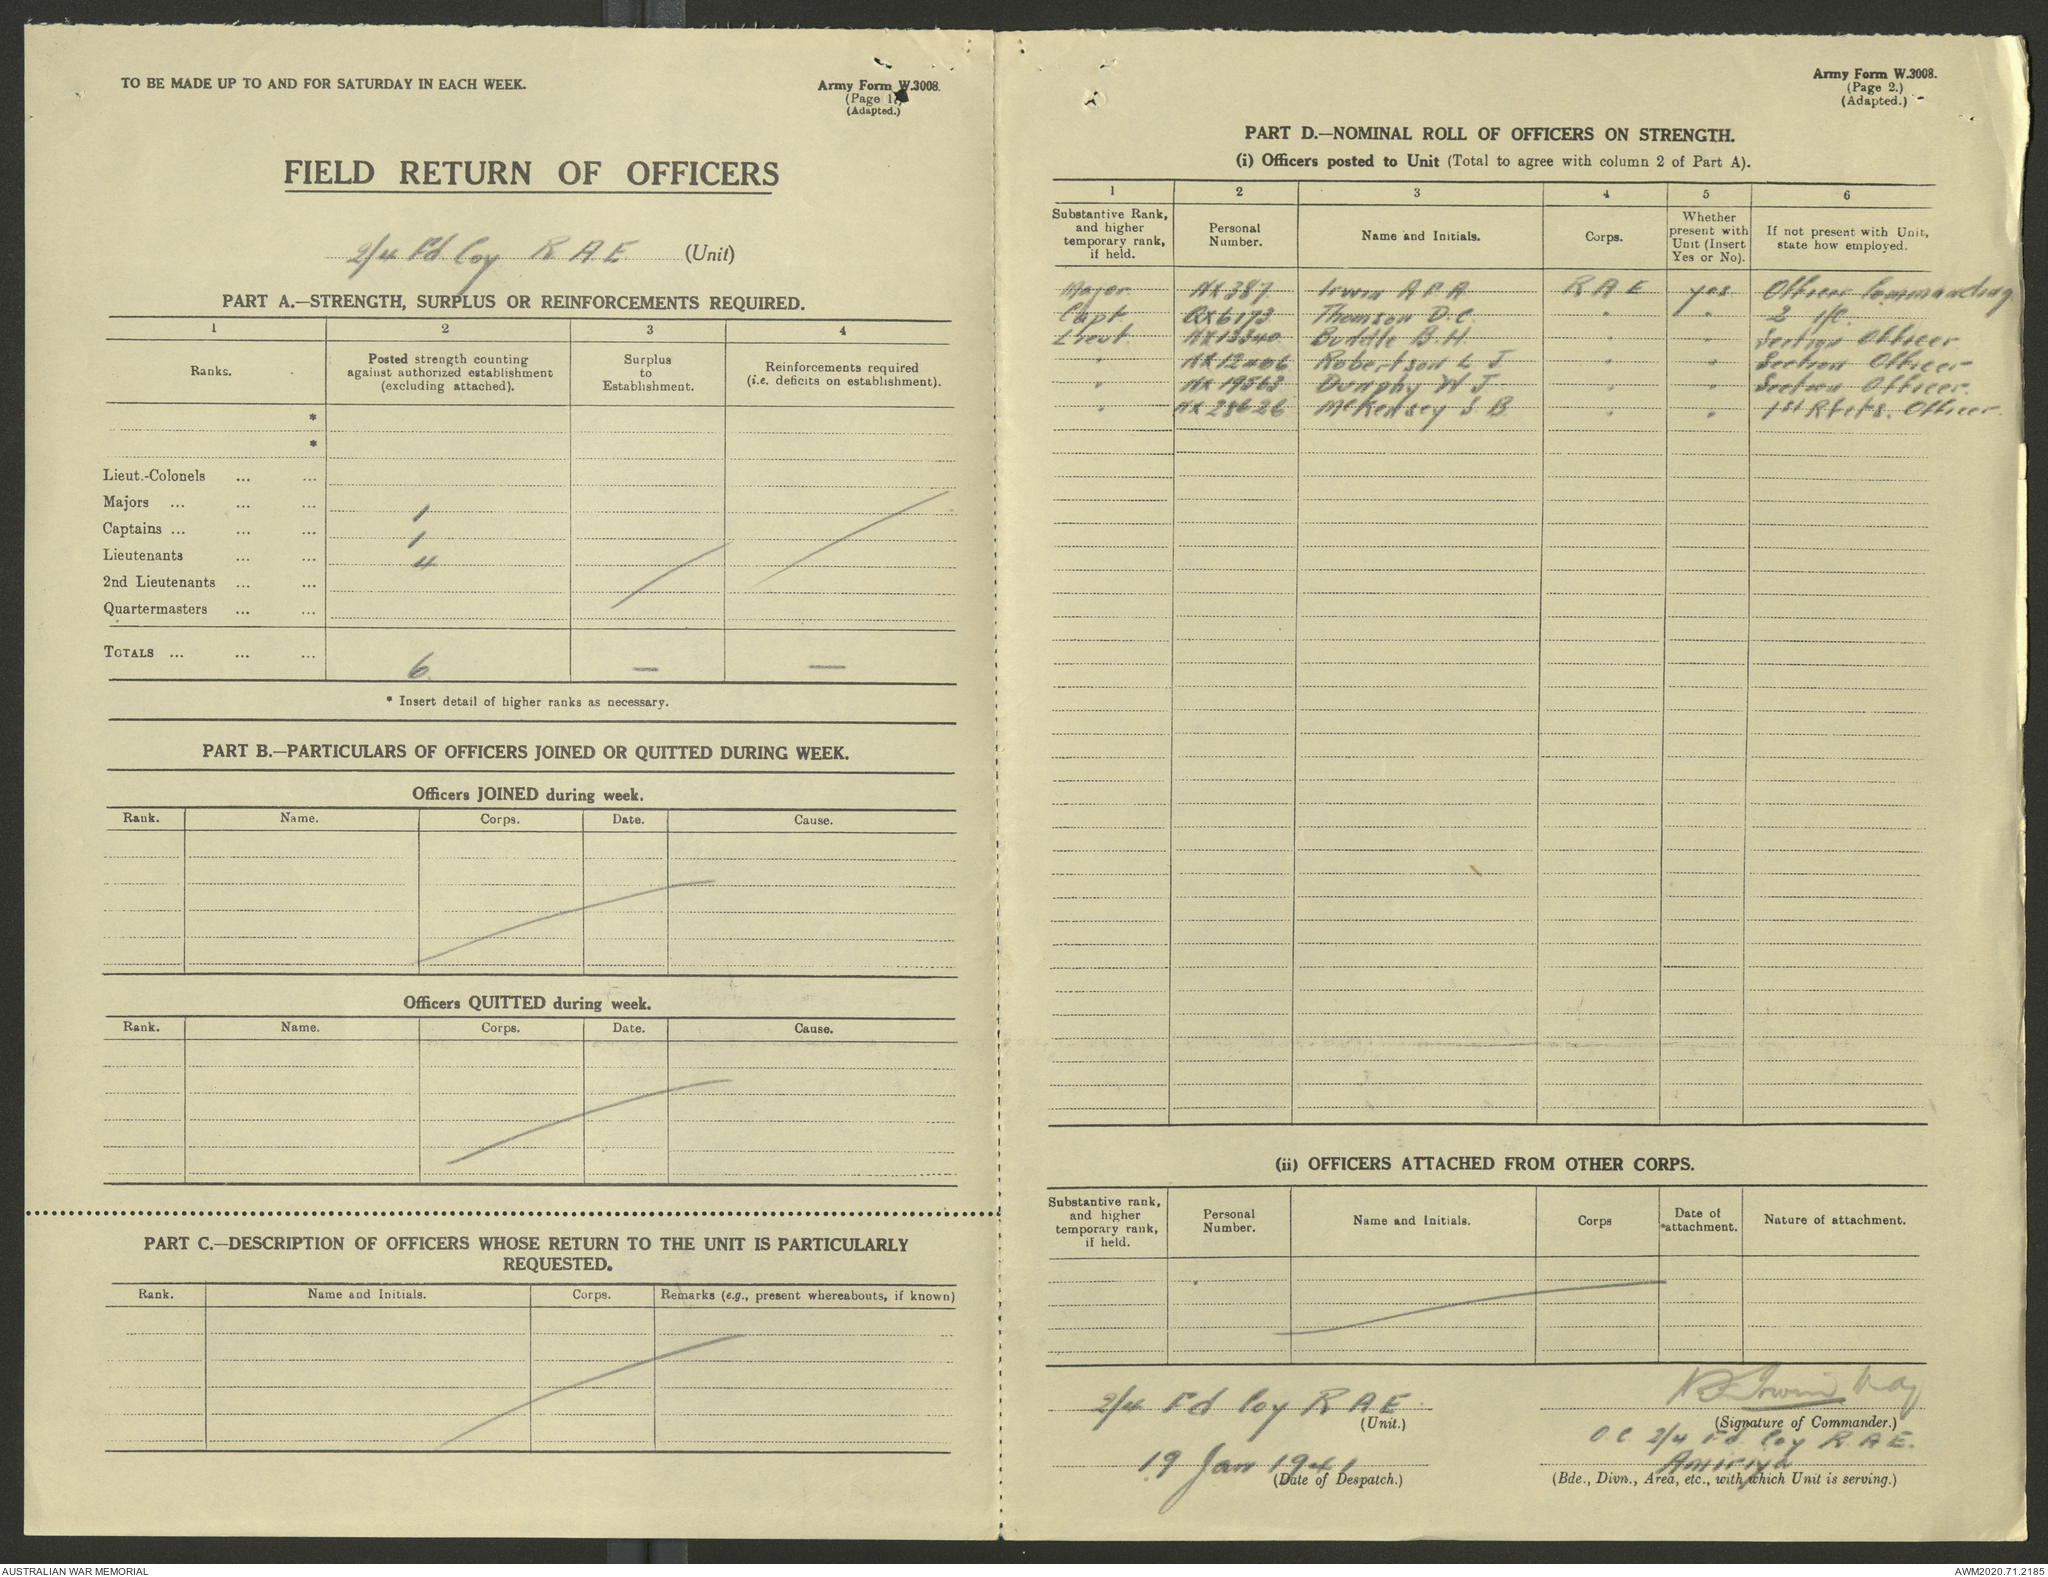 TO BE MADE UP TO AND FOR SATURDAY IN EACH WEEK.
Army Form W.3008.
(Page 1.)
(Adapted.)
FIELD RETURN OF OFFICERS
2/4 Fd Coy R A E (Unit)
PART A.—STRENGTH, SURPLUS OR REINFORCEMENTS REQUIRED.
1 2 3 4
Ranks. Posted strength counting against authorized establishment (excluding attached). Surplus to Establishment. Reinforcements required (i.e. deficits on establishment).
*
*
Lieut.-Colonels ... ...
Majors ... ... ... 1
Captains ... ... ... 1
Lieutenants ... ... 4
2nd Lieutenants ... ...
Quartermasters ... ...
TOTALS ... ... ... 6 — —
* Insert detail of higher ranks as necessary.
PART B.—PARTICULARS OF OFFICERS JOINED OR QUITTED DURING WEEK.
Officers JOINED during week.
Rank. Name. Corps. Date. Cause.
Officers QUITTED during week.
Rank. Name. Corps. Date. Cause.
PART C.—DESCRIPTION OF OFFICERS WHOSE RETURN TO THE UNIT IS PARTICULARLY
REQUESTED.
Rank. Name and Initials. Corps. Remarks (e.g., present whereabouts, if known)
Army Form W.3008.
(Page 2.)
(Adapted.)
PART D.—NOMINAL ROLL OF OFFICERS ON STRENGTH.
(i) Officers posted to Unit (Total to agree with column 2 of Part A).
1 2 3 4 5 6
Substantive Rank, and higher temporary rank, if held. Personal Number. Name and Initials. Corps. Whether present with Unit (Insert Yes or No). If not present with Unit, state how employed.
Major NX387 Irwin A P A R A E yes Officer Commanding
Capt. QX6173 Thomson D.C. " " 2 i/c.
Lieut. NX13340 B.H. " " Section Officer
" Robertson L J " " Section Officer
" NX19563 Dunphy W J " " Section Officer.
" NX28626 McKensey S B " " 1st Rfcts. Officer
(ii) OFFICERS ATTACHED FROM OTHER CORPS.
Substantive rank, and higher temporary rank, if held. Personal Number. Name and Initials. Corps Date of attachment. Nature of attachment.
2/4 Fd Coy R A E
(Unit.)
19 Jan 1941
(Date of Despatch.)
Irwin Maj
(Signature of Commander.)
O.C. 2/4 Fd. Coy R.A.E.
Amiriya
(Bde., Divn., Area, etc., with which Unit is serving.)
AUSTRALIAN WAR MEMORIAL
AWM2020.71.2185